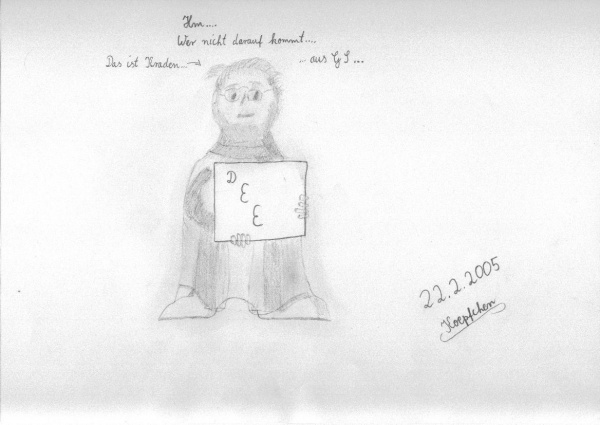 Hm....
Wer nicht darauf kommt....
Das ist Kraden...→ ... aus GS...
D
E
E
22.2.2005
Koepfchen